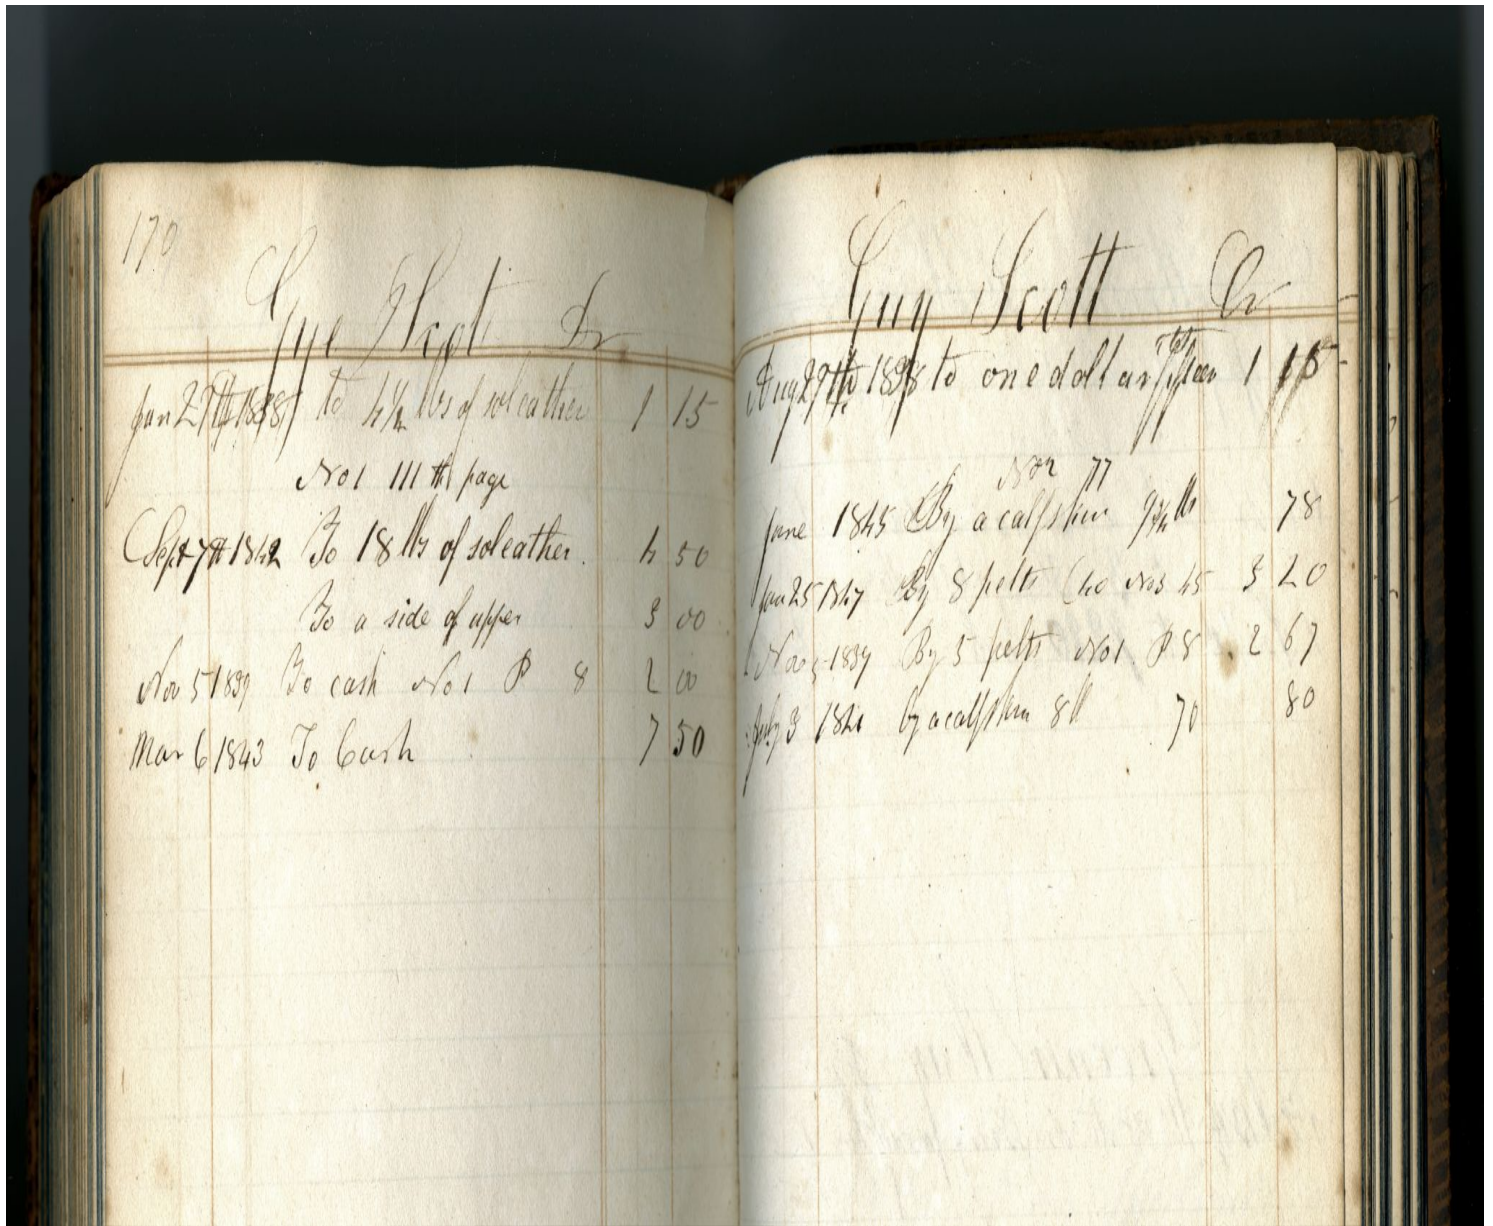 170
Gye Skot Dr
Jan 27th 1838 to 4 1/2 lbs of soleather 1 15
No 1 111 th page
Sept 7th 1842 To 18 lbs of soleather. 4 50
To a side of upper 3 00
Nov 5 1839 To cash No 1 P 8 2 00
Mar 6 1843 To Cash 7 50
Guy Scott Cr
Aug 27th 1838 to one dollar fifteen cts 1 15
No 2 77
June 1845 By a calfskin 9 3/4 lb 78
Jan 25 1847 By 8 pelts (40 No 3 45 3 20
Nov 5 1839 By 5 pelts No 1 P 8 2 67
July 3 by a calfskin 8 ll 70 80